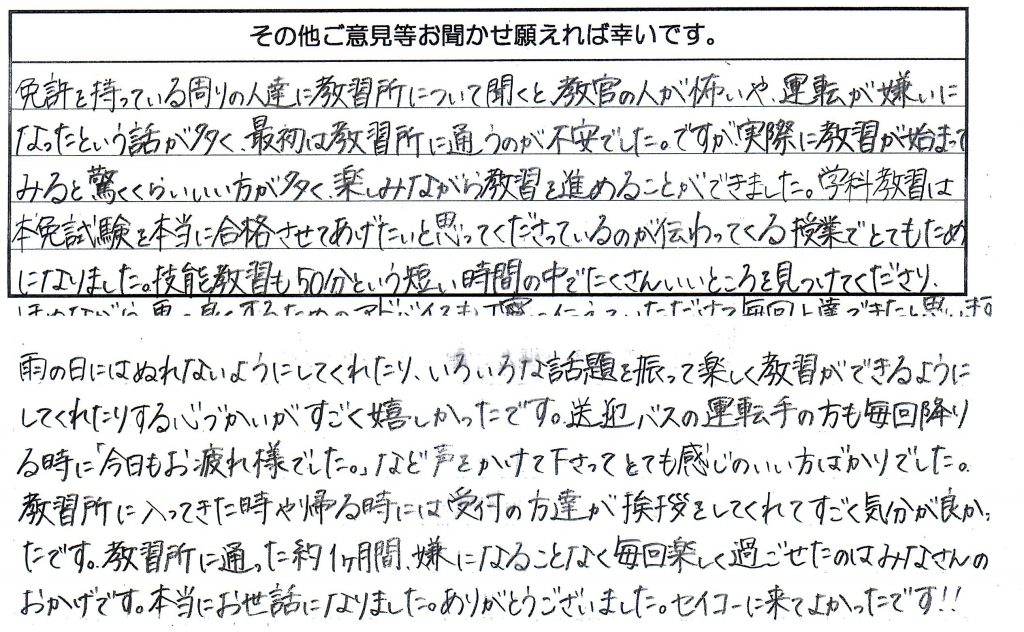 その他ご意見等お聞かせ願えれば幸いです。
免許を持っている周りの人達に教習所について聞くと、教官の人が怖いや、運転が嫌いに
なったという話が多く、最初は教習所に通うのが不安でした。ですが、実際に教習が始まって
みると驚くくらいいい方が多く、楽しみながら教習を進めることができました。学科教習は
本免試験を本当に合格させてあげたいと思ってくださっているのが伝わってくる授業でとてもため
になりました。技能教習も50分という短い時間の中でたくさんいいところを見つけてくださり、
ほめながら更に良くするためのアドバイスも丁寧に行っていただけて毎回上達できたと思います
雨の日にはぬれないようにしてくれたり、いろいろな話題を振って楽しく教習ができるように
してくれたりする心づかいがすごく嬉しかったです。送迎バスの運転手の方も毎回降り
る時に「今日もお疲れ様でした。」など声をかけて下さってとても感じのいい方ばかりでした。
教習所に入ってきた時や帰る時には受付の方達が挨拶をしてくれてすごく気分が良かっ
たです。教習所に通った約1ヶ月間、嫌になることなく毎回楽しく過ごせたのはみなさんの
おかげです。本当にお世話になりました。ありがとうございました。セイコーに来てよかったです!!